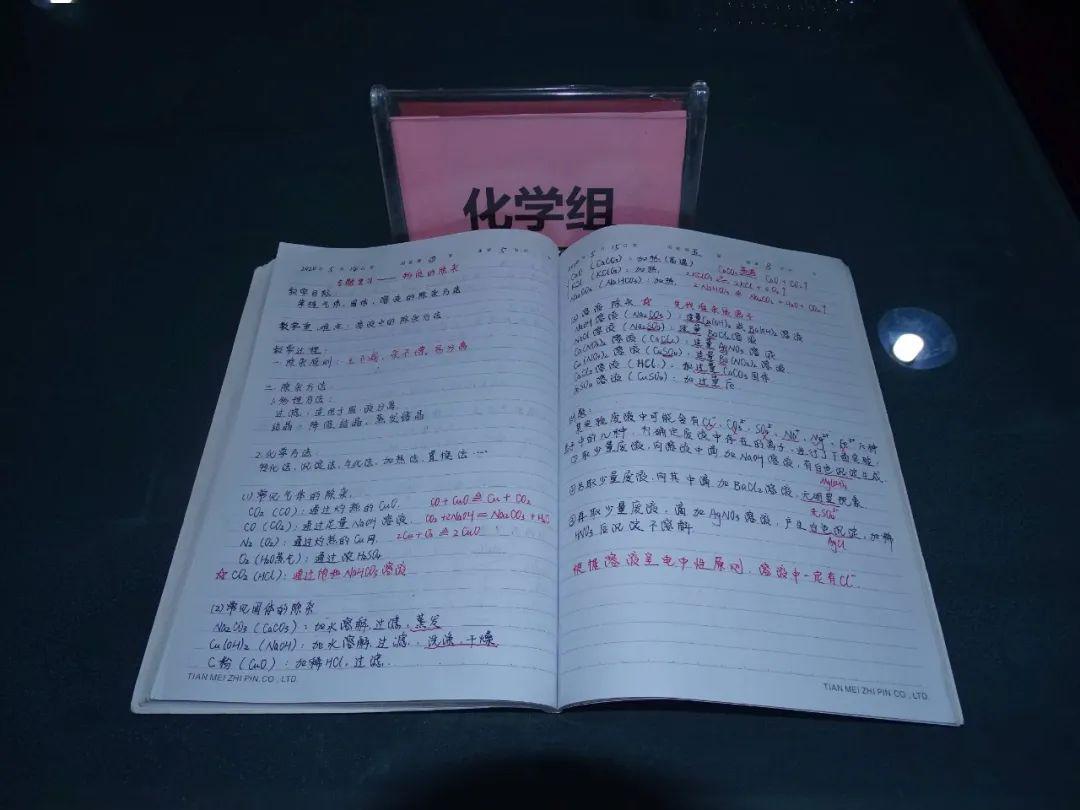 化学组
专题复习——物质的除杂
教学目标:
掌握气体、固体、溶液的除杂方法
教学重、难点:溶液中的除杂方法
教学过程:
一.除杂原则:不易分离
二.除杂方法:
1.物理性方法:
过滤:适用于固液分离
结晶:降温结晶、蒸发结晶
2.化学方法
沉淀法、气化法、加热法、置换法……
(1)常见气体的除杂.
CO₂(CO):通过灼热的CuO. CO+CuO≜Cu+CO₂
CO(CO₂):通过足量NaOH溶液. CO₂+2NaOH=Na₂CO₃+H₂O
N₂(O₂):通过灼热的Cu网. 2Cu+O₂≜2CuO
O₂(H₂O蒸气):通过浓H₂SO₄
☆CO₂(HCl):通过饱和NaHCO₃溶液
(2)常见固体的除杂
Na₂CO₃(CaCO₃):加水溶解,过滤,蒸发
Cu(OH)₂(NaOH):加水溶解,过滤,洗涤,干燥
C粉(CuO):加稀HCl,过滤.
TIAN MEI ZHI PIN CO., LTD.
CaO(CaCO₃):加热(高温) CaCO₃ 高温 CaO+CO₂↑
KCl(KClO₃):加热,
Na₂CO₃(NaHCO₃):加热, 2NaHCO₃≜Na₂CO₃+H₂O+CO₂↑
(3)溶液除杂☆
NaOH溶液(Na₂CO₃):适量Ca(OH)₂或Ba(OH)₂溶液
NaCl溶液(Na₂SO₄):适量BaCl₂溶液
Ca(NO₃)₂溶液(CaCl₂):适量AgNO₃溶液
Cu(NO₃)₂溶液(CuSO₄):适量Ba(NO₃)₂溶液
CaCl₂溶液(HCl):加过量CaCO₃固体
FeSO₄溶液(CuSO₄):加过量Fe
例题:
某实验废液中可能含有Cl⁻、CO₃²⁻、SO₄²⁻、Na⁺、Mg²⁺、Fe³⁺六种
离子中的几种,为确定废液中存在的离子,进行了下面实验:
①取少量废液,向溶液中滴加NaOH溶液,有白色沉淀生成.
Mg(OH)₂
②另取少量废液,向其中滴加BaCl₂溶液,无明显现象.
无SO₄²⁻
③再取少量废液,滴加AgNO₃溶液,产生白色沉淀,加稀
HNO₃后沉淀不溶解.
AgCl
根据溶液呈电中性原则,溶液中一定有Cl⁻.
TIAN MEI ZHI PIN CO., LTD.